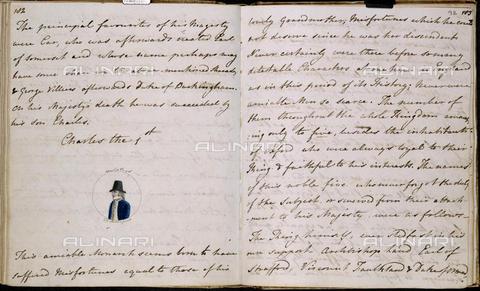 102
The principal favourites of his Majesty
were Car, who was afterwards created Earl
of Somerset and whose name perhaps may
have some share in his above-mentioned Sharade,
& George Villiers afterwards Duke of Buckingham.
On his Majesty's death he was succeeded by
his son Charles.
Charles the 1st
This amiable Monarch seems born to have
suffered Misfortunes equal to those of his
92 103
lovely Grandmother; Misfortunes which he could
not deserve since he was her descendant.
Never certainly were there before so many
detestable Characters at one time in England
as in this period of its History; Never were
amiable Men so scarce. The number of
them throughout the whole Kingdom amount-
ing only to five, besides the inhabitants
of Oxford who were always loyal to their
King & faithful to his interests. The names
of this noble five who never forgot the duty
of the Subject, or swerved from their attach-
ment to his Majesty, were as follows-
The King himself, ever stedfast in his
own support- Archbishop Laud, Earl of
Strafford, Viscount Faulkland & Duke of Ormond
ALINARI
ALINARI
ALINARI
ALINARI